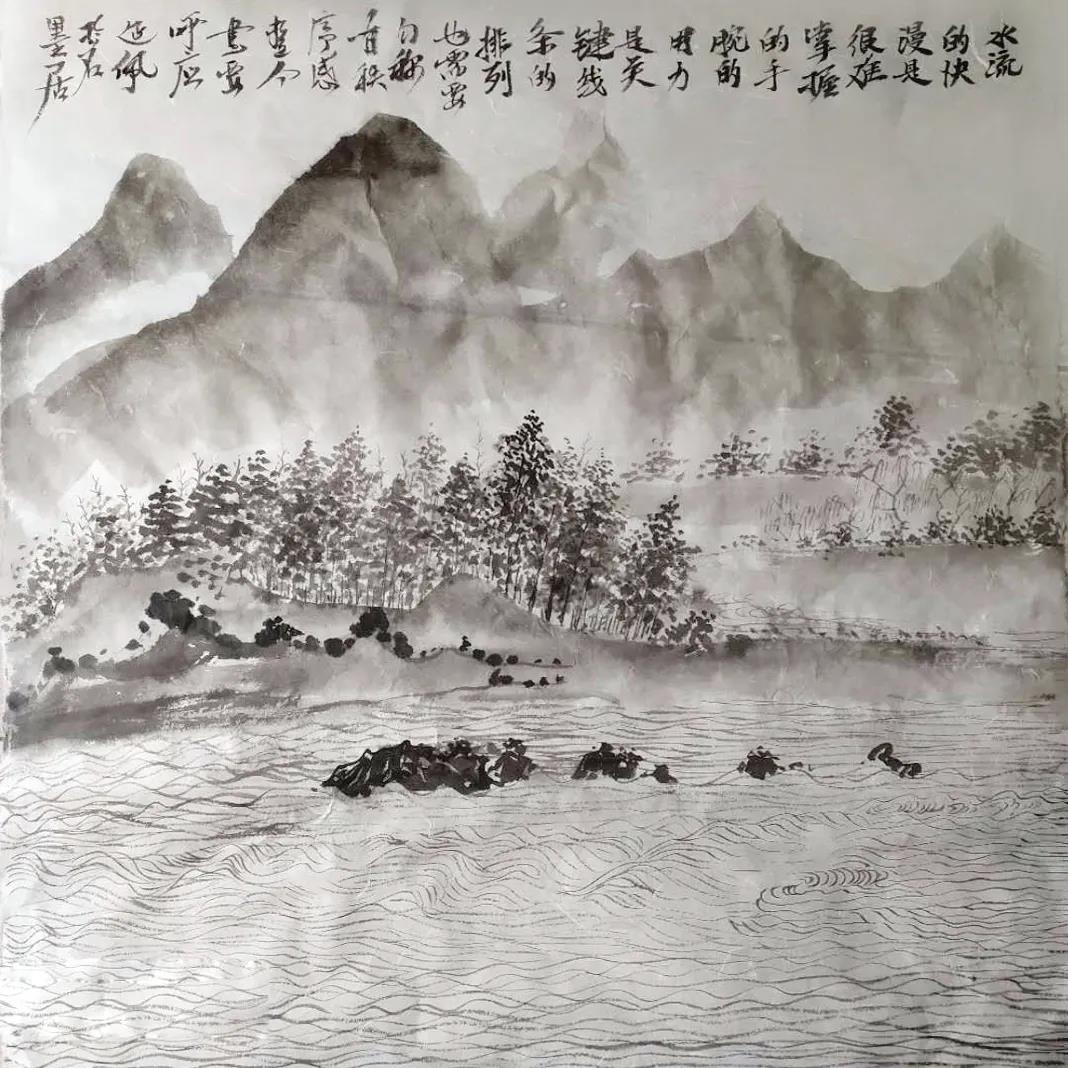 水流
的快
漫是
很难
掌握
的手
腕的
用力
是关
键线
条的
排列
也需要
匀称
有秩
序感
整个
畫要
呼应
佩
於
墨居